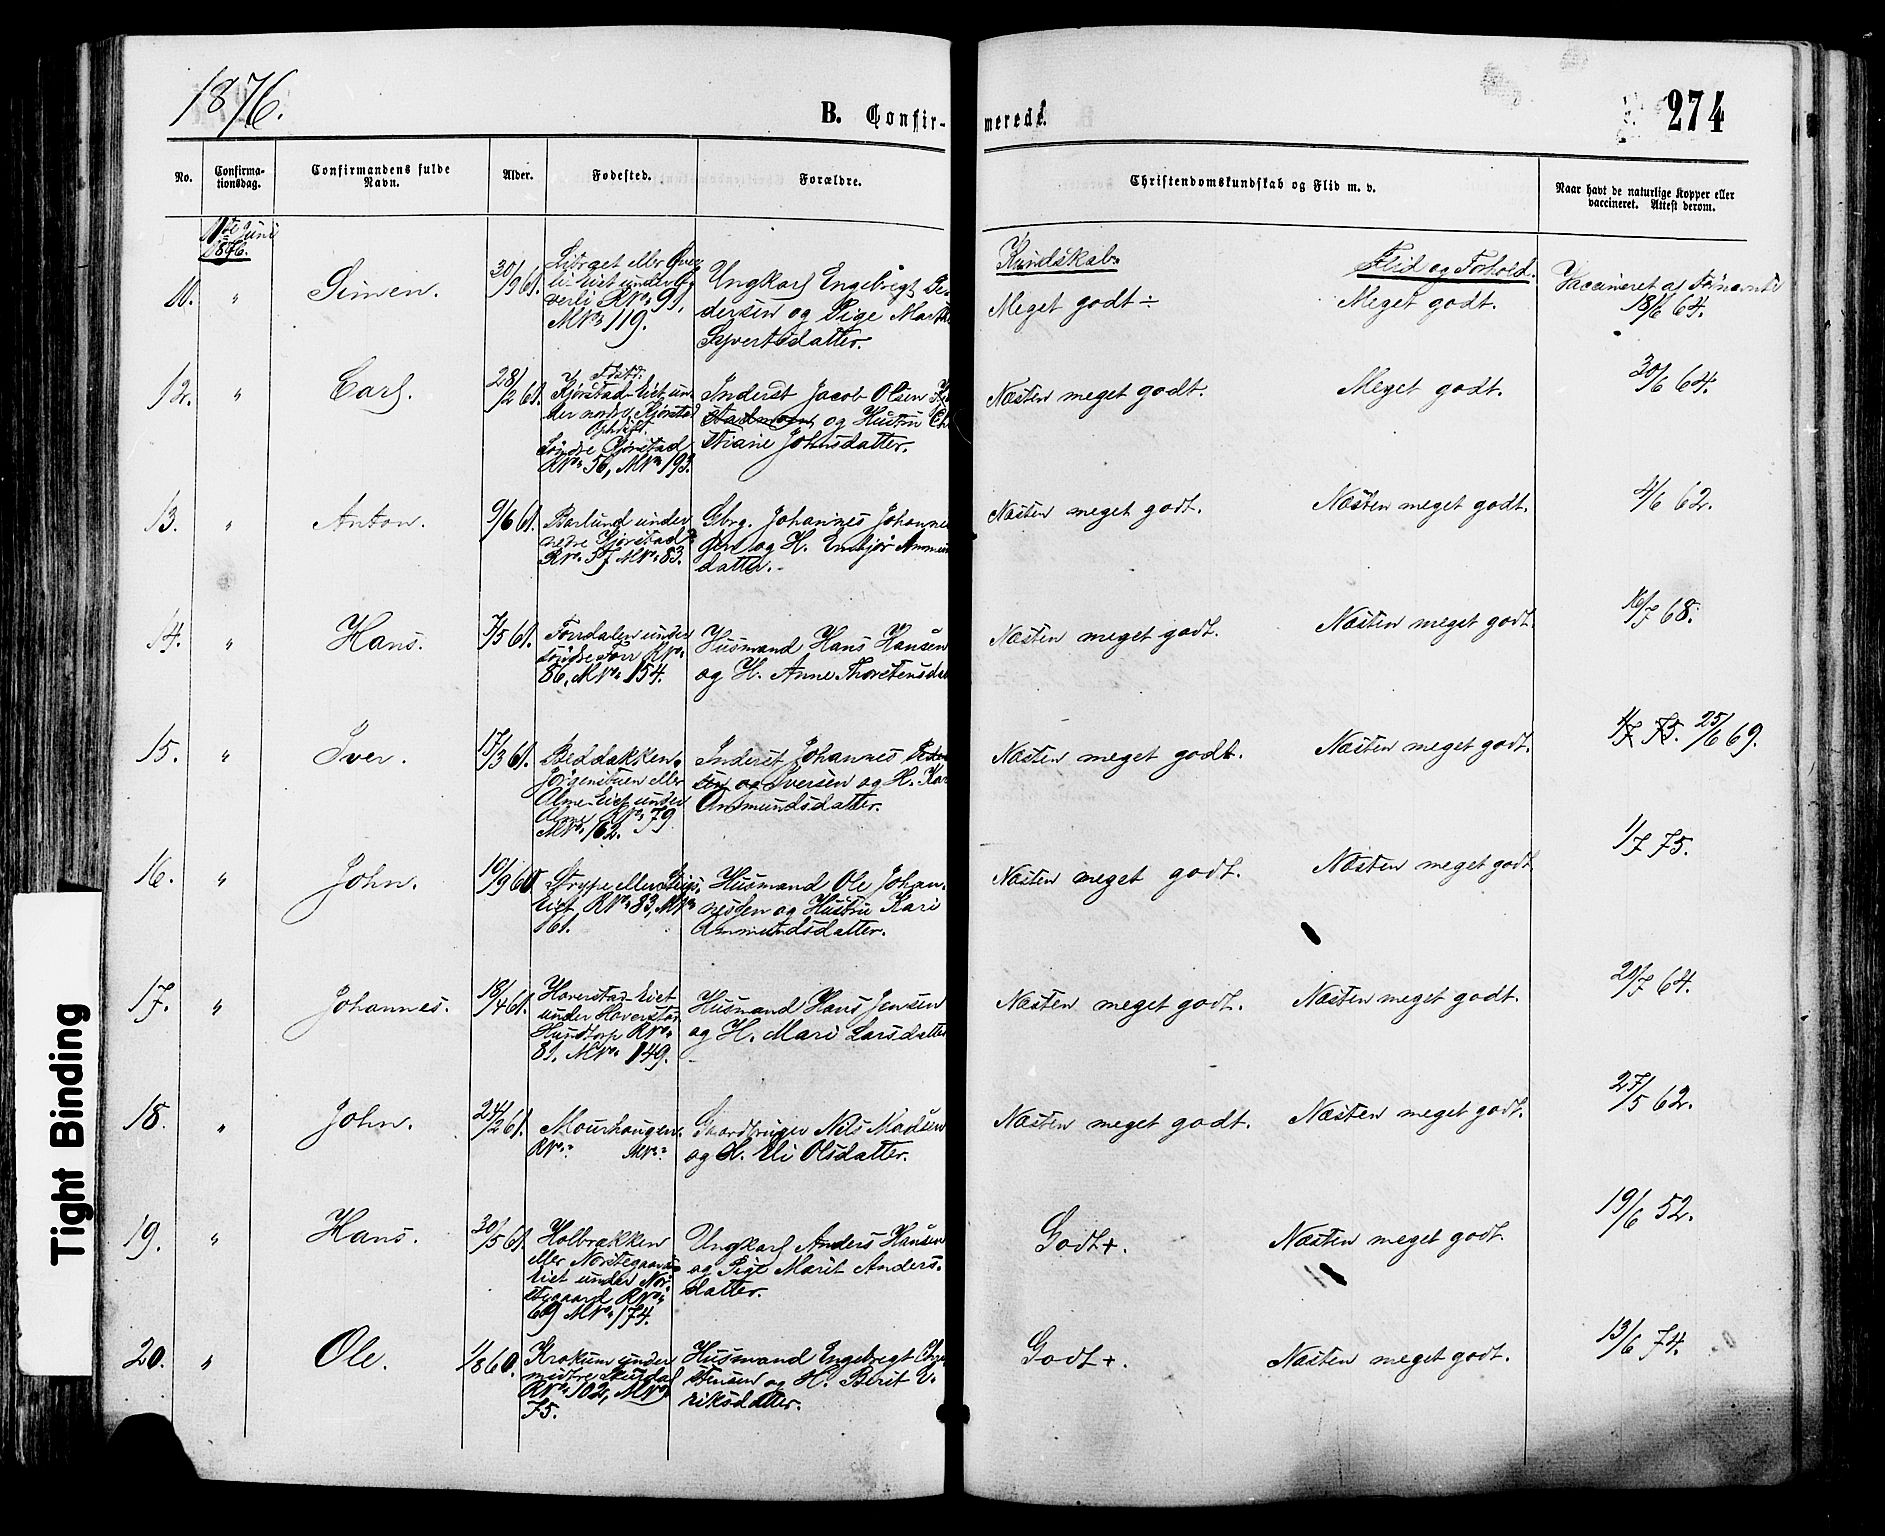 1876.
B. Confirmerede.
274
No.
Confirmationsdag.
Confirmandens fulde Navn.
Alder.
Fødested.
Forældre.
Christendomskundskab og Flid m. v.
Naar havt de naturlige Kopper eller vaccineret. Attest derom.
11te Juni
1876.
Kundskab.
Flid og Forhold.
11.
"
Simen.
30/9 61.
eller
Eiet under
verli RNo. 91,
MNo. 119.
Ungkarl Engebrigt Pe-
dersen og Pige Marthe
Syvertsdatter.
Meget godt ÷
Meget godt.
Vaccineret af
18/6 64.
12.
"
Carl.
28/2 61.
Fdstd.
Kjørstad-Eiet un-
der nordre Kjørstad
Søndre Kjørstad
RNo. 56, MNo. 193.
Inderst Jacob Olsen
og Hustru Chri
stiane Johnsdatter.
Næsten meget godt.
Meget godt.
30/6 64.
13.
"
Anton.
9/6 61.
Barlund under
nedre Kjørstad
RNo. 57 MNo. 83.
Gbrg. Johannes Johanne
sen og H. Embjør Ammun
datter.
Næsten meget godt.
Næsten meget godt.
4/6 62.
14.
"
Hans.
7/5 61.
Forrdalen under
søndre Forr RNo.
86, MNo. 154.
Husmand Hans Hansen
og H. Anne Thorstensda
Næsten meget godt.
Næsten meget godt.
16/7 68.
15.
"
Iver.
17/3 61.
Beddakken,
Jørgenstuen eller
Olme-Eiet under
Olme RNo. 79
MNo. 162.
Inderst Johannes
Iversen og H. Kari
Ammundsdatter.
Næsten meget godt.
Næsten meget godt.
1/7 75. 25/6 69.
16.
"
John.
10/9 60
Strype eller
Eiet, RNo. 83, MNo.
161.
Husmand Ole Johan-
nesen og Hustru Kari
Ammundsdatter.
Næsten meget godt.
Næsten meget godt
1/7 75.
17.
"
Johannes.
18/4 61.
Hoverstad-Eiet
under Hoverstad
Hundtorp RNo.
81. MNo. 149.
Husmand Hans Jensen
og H. Mari Larsdatter
Næsten meget godt.
Næsten meget godt.
20/7 64.
18.
"
John.
24/2 61.
Mourhaugen.
RNo. MNo.
Gaardbruger Nils Madsen
og H. Eli Olsdatter.
Næsten meget godt.
Næsten meget godt.
27/5 62.
19.
"
Hans.
30/5 61.
Holbrækken
eller Nordstegaards-
Eiet under Nor-
stegaard RNo.
69 MNo. 174.
Ungkarl Anders Hansen
og Pige Marit Anders-
datter.
Godt +.
Næsten meget godt
19/6 52.
20.
"
Ole.
1/8 60.
Krokum under
midtre Skurdal
RNo. 102, MNo.
75.
Husmand Engebrigt Chri
stensen og H. Berit U-
riksdatter.
Godt +.
Næsten meget godt.
13/6 74.
Tight Binding